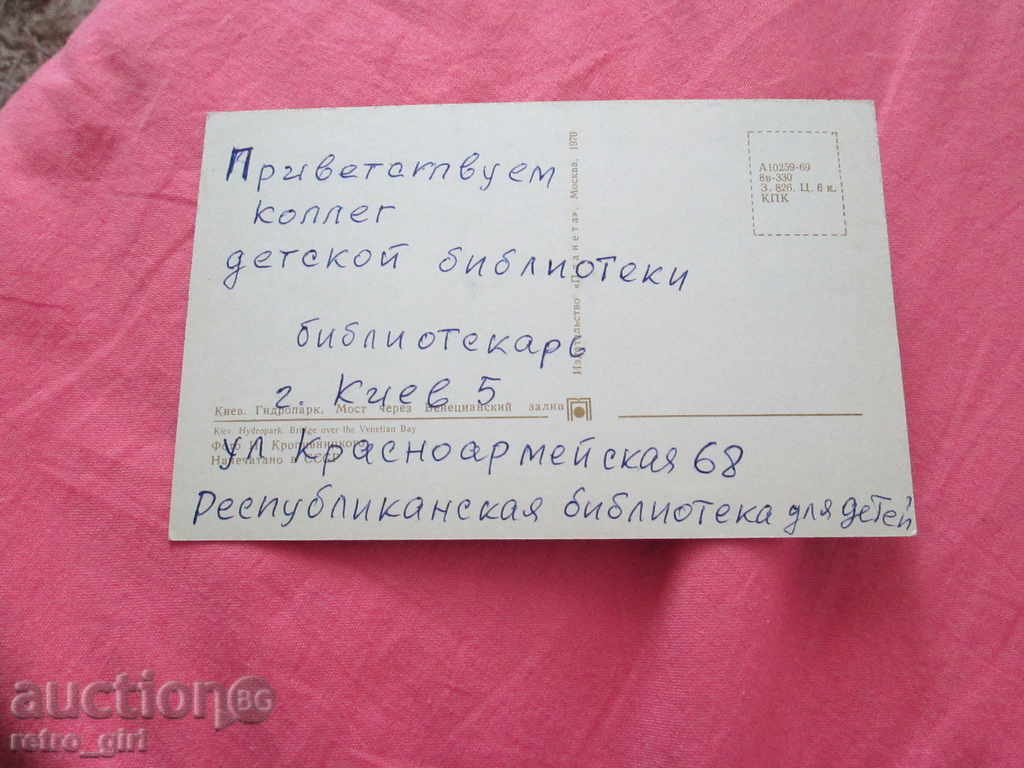 Приветствуем
коллег
детской библиотеки
библиотекарь
г. Киев 5
ул Красноармейская 68
Республиканская библиотека для детей
Киев. Гидропарк. Мост через Венецианский залив
Kiev. Hydropark. Bridge over the Venetian Bay
Фото Н. Кропивницкого
Напечатано в СССР
Издательство «Планета». Москва. 1970
А10259-69
8в-330
З. 826. Ц. 6 к.
КПК
auction BG
retro_girl